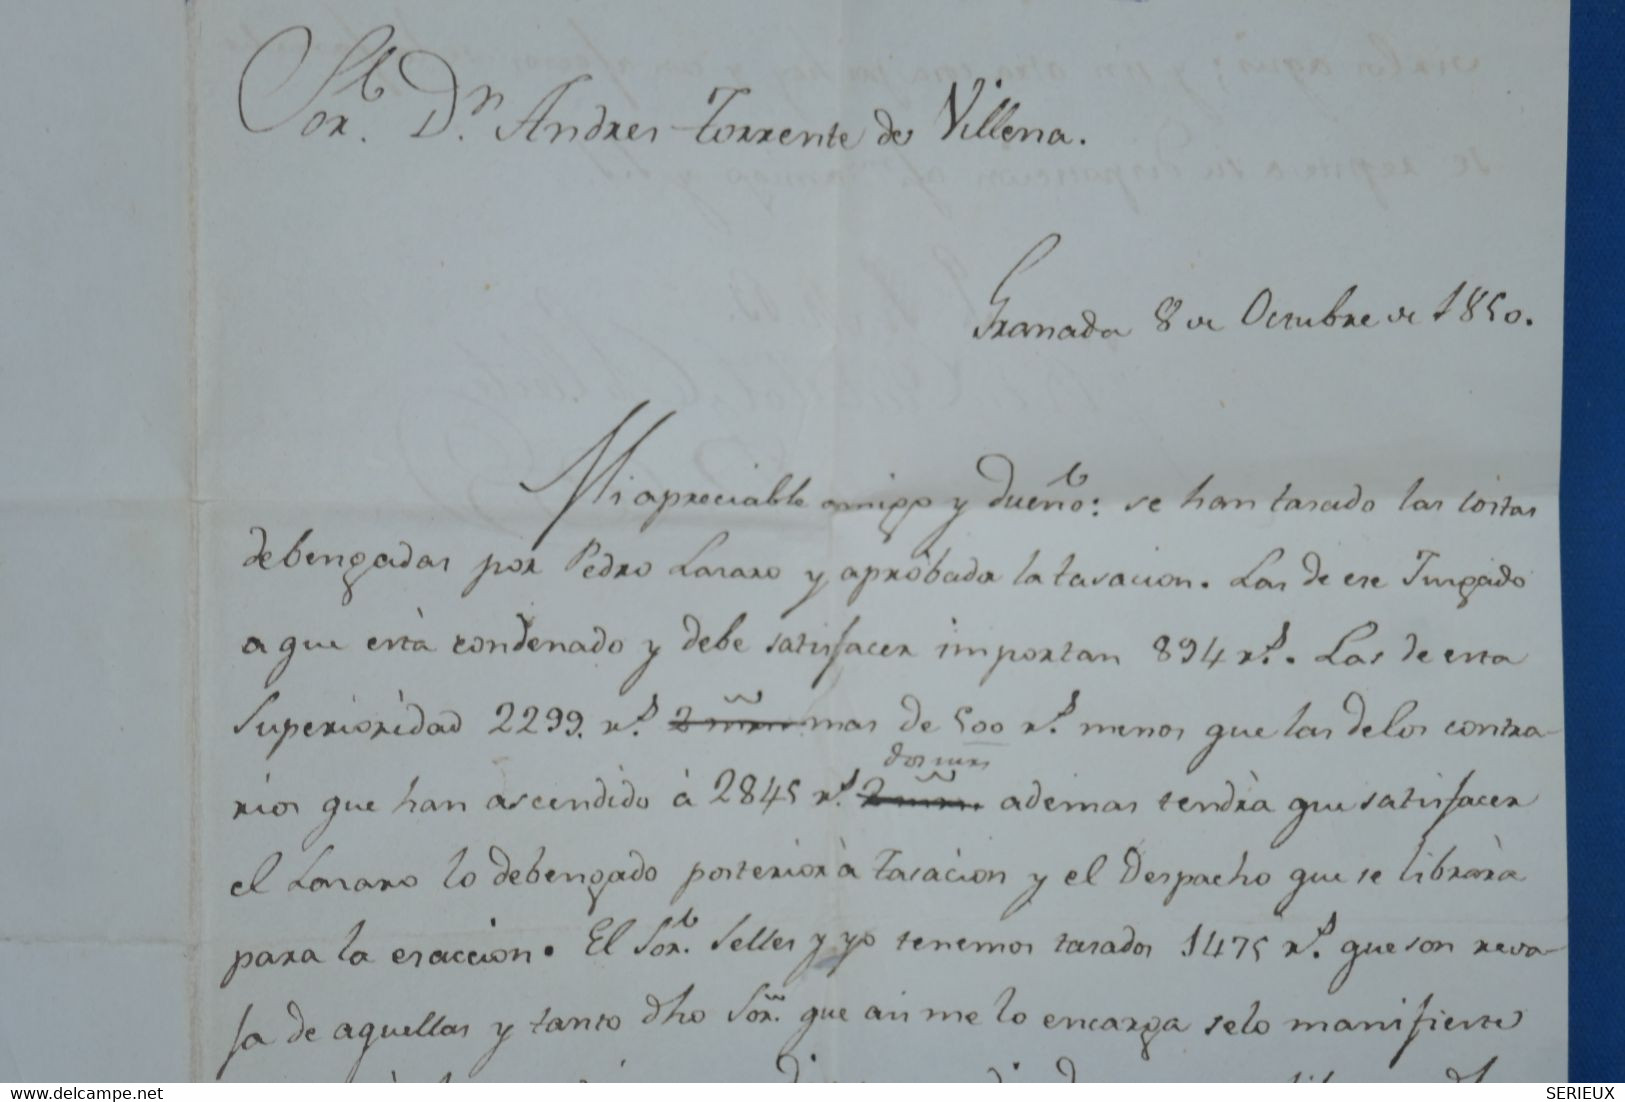 Sor. Dn. Andres Torrente de Villena.
Granada 8 de Octubre de 1850.
Mi apreciable amigo y dueño: se han tasado las costas
debengadas por Pedro Lasaro y aprobada la tasacion. Las de ese Jusgado
a que està condenado y debe satisfacer importan 894 rs. Las de esta
Superioridad 2299. rs. mas de 500 rs. menos que las de los contra-
rios que han ascendido à 2845 rs. dos mrs ademas tendrà que satisfacer
el Lasaro lo debengado posterior à tasàcion y el Despacho que se librarà
para la esaccion. El Sor. Selles y yo tenemos tasados 1475 rs. que son reva-
sa de aquellas y tanto dho Sor. que asi me lo encarga selo manifieste
SERIEUX